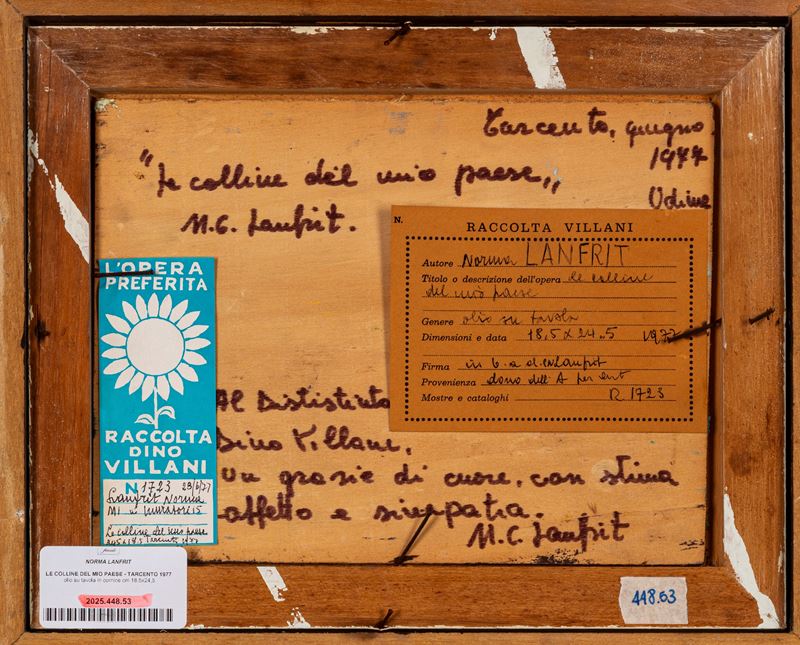 Tarcento, giugno
1977
Udine
"Le colline del mio paese,,
M.C. Lanfrit.
N.
RACCOLTA VILLANI
Autore Norma LANFRIT
Titolo o descrizione dell'opera le colline
del mio paese
Genere olio su tavola
Dimensioni e data 18,5 x 24,5 1977
Firma in b. a d. Lanfrit
Provenienza dono dell'A per
Mostre e cataloghi R 1723
L'OPERA
PREFERITA
RACCOLTA
DINO
VILLANI
N 1723 29/6/77
Lanfrit Norma
MI
Le colline del mio paese
Tarcento
Al Distintato
Dino Villani.
Un grazie di cuore, con stima
affetto e simpatia.
M.C. Lanfrit
NORMA LANFRIT
LE COLLINE DEL MIO PAESE - TARCENTO 1977
olio su tavola in cornice cm 18.5x24,5
2025.448.53
448.53